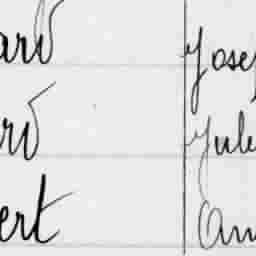 ard Josep
ard Jule
ert Am